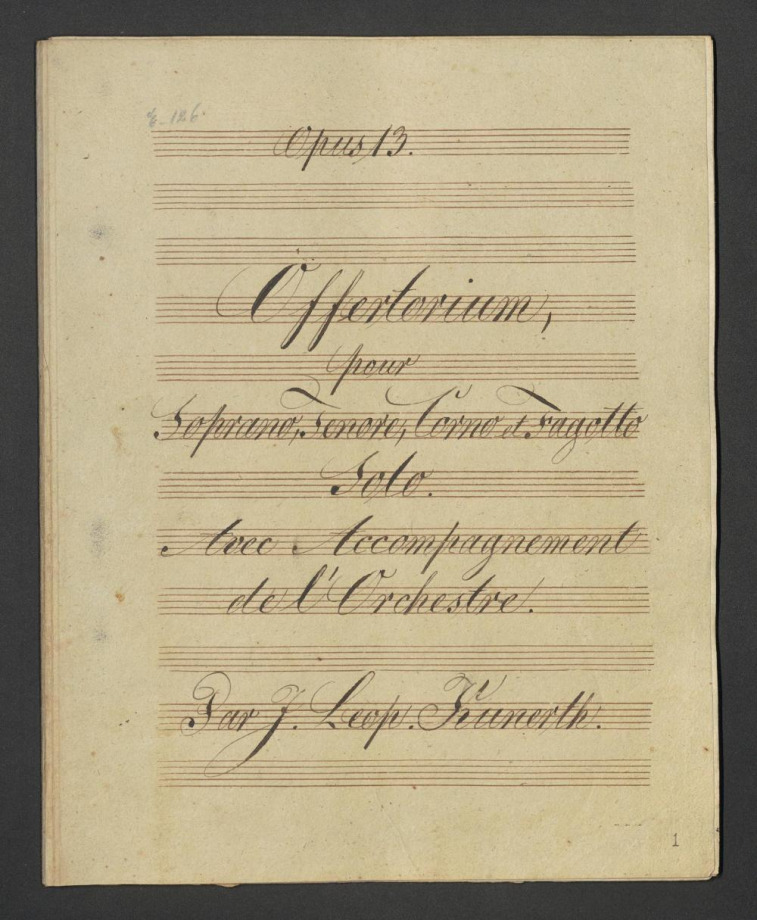 126.
Opus 13.
Offertorium,
pour
Soprano, Tenore, Corno et Fagotto
Solo.
Avec Accompagnement
de l'Orchestre.
Par J. Leop. Kunerth.
1